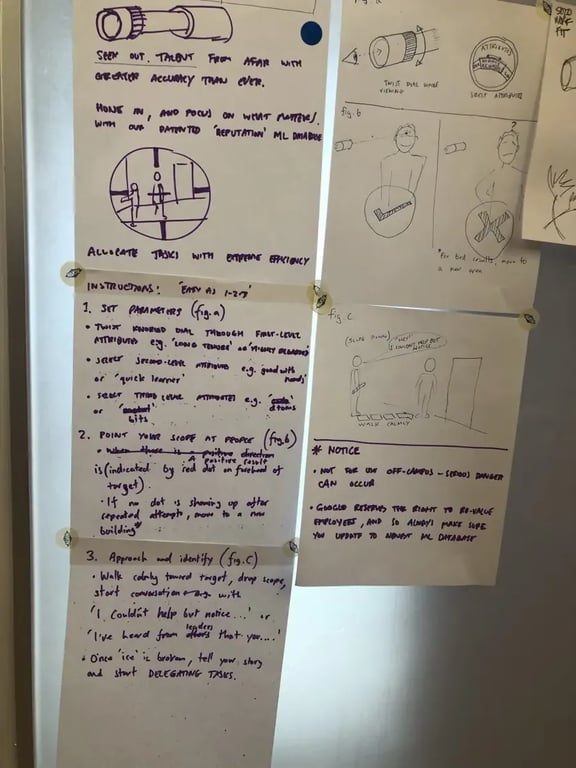 SEEK OUT TALENT FROM AFAR WITH
GREATER ACCURACY THAN EVER.
HONE IN, AND FOCUS ON WHAT MATTERS,
WITH OUR PATENTED 'REPUTATION' ML DATABASE
ALLOCATE TASKS WITH EXTREME EFFICIENCY
INSTRUCTIONS: 'EASY AS 1-2-3'
1. SET PARAMETERS (fig.a)
• TWIST KNURLED DIAL THROUGH FIRST-LEVEL
ATTRIBUTES e.g. 'LONG TENURE' or
• SELECT SECOND-LEVEL ATTRIBUTE e.g. 'good with
or 'quick learner'
• SELECT THIRD LEVEL ATTRIBUTES e.g. atoms
or bits.
2. POINT YOUR SCOPE AT PEOPLE (fig.b)
• When there is a positive direction
A positive result
is (indicated by red dot on forehead of
target).
• If no dot is showing up after
repeated attempts, move to a new
building*
3. Approach and identify (fig.C)
• Walk calmly toward target, drop scope,
start conversation with
'I couldn't help but notice...' or
leaders
'I've heard from others that you....'
• Once 'ice' is broken, tell your story
and start DELEGATING TASKS.
TWIST DIAL WHILE
VIEWING
ATTRIBUTES
SELECT ATTRIBUTES
fig. b
?
*For best results, move to
a new area
fig. C
(SCOPE DOWN)
"HEY!
I COULDN'T HELP BUT
NOTICE
WALK CALMLY
* NOTICE
• NOT FOR USE OFF-CAMPUS - SERIOUS DANGER
CAN OCCUR
• GOOGLE RESERVES THE RIGHT TO RE-VALUE
EMPLOYEES, AND SO ALWAYS MAKE SURE
YOU UPDATE TO NEWEST ML DATABASE